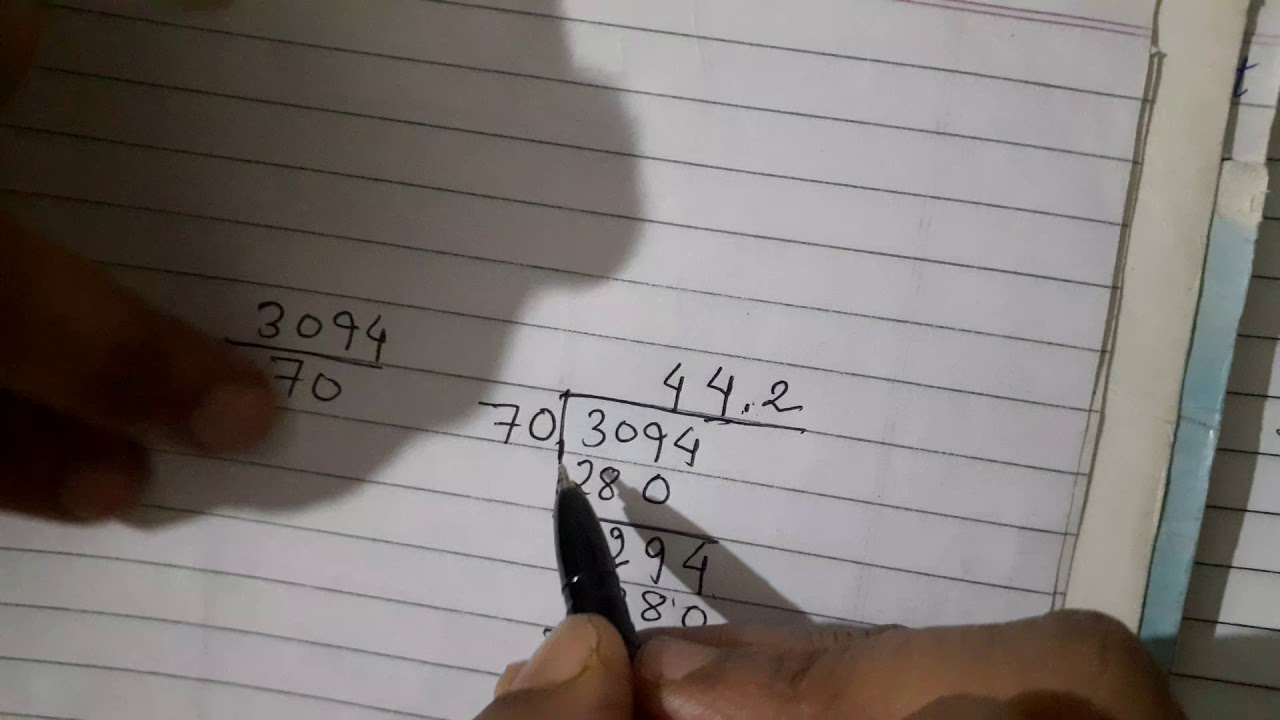 3094
70
44.2
70 3094
280
294
80
t